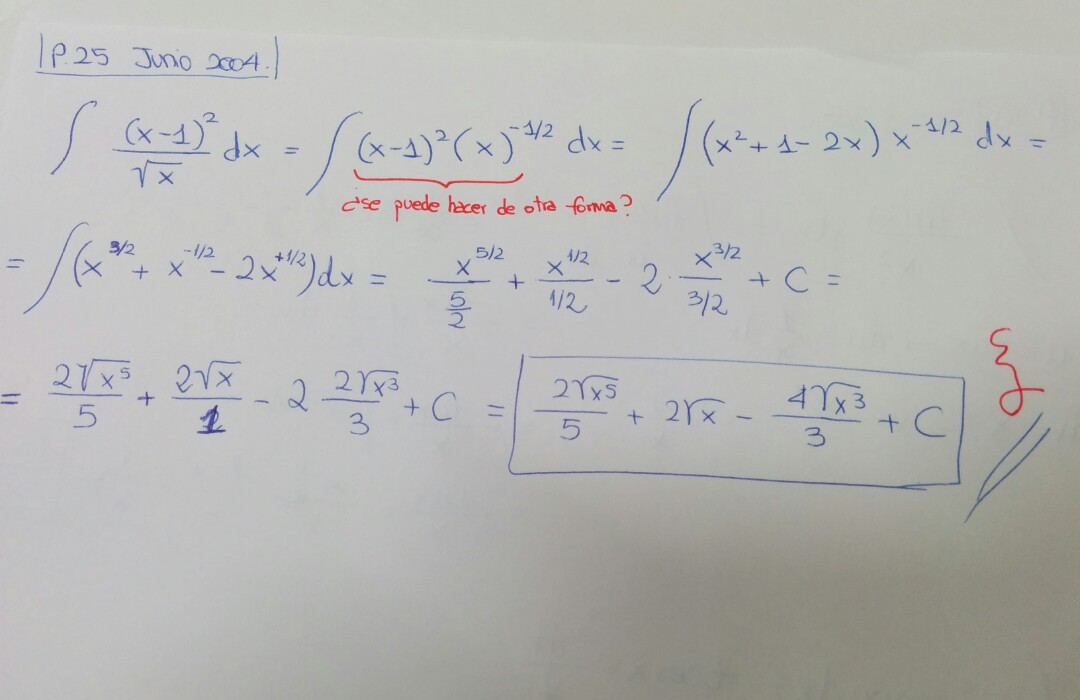 P.25 Junio 2004.
∫ (x-1)²/√x dx = ∫ (x-1)² (x)^(-1/2) dx = ∫ (x² + 1 - 2x) x^(-1/2) dx =
¿se puede hacer de otra forma?
= ∫ (x^(3/2) + x^(-1/2) - 2x^(+1/2)) dx = x^(5/2)/(5/2) + x^(1/2)/(1/2) - 2 · x^(3/2)/(3/2) + C =
= 2√x⁵/5 + 2√x/1 - 2 2√x³/3 + C = 2√x⁵/5 + 2√x - 4√x³/3 + C